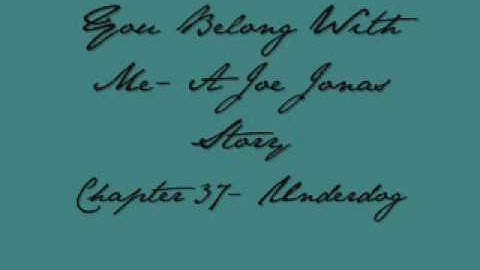 You Belong With
Me- A Joe Jonas
Story
Chapter 37- Underdog